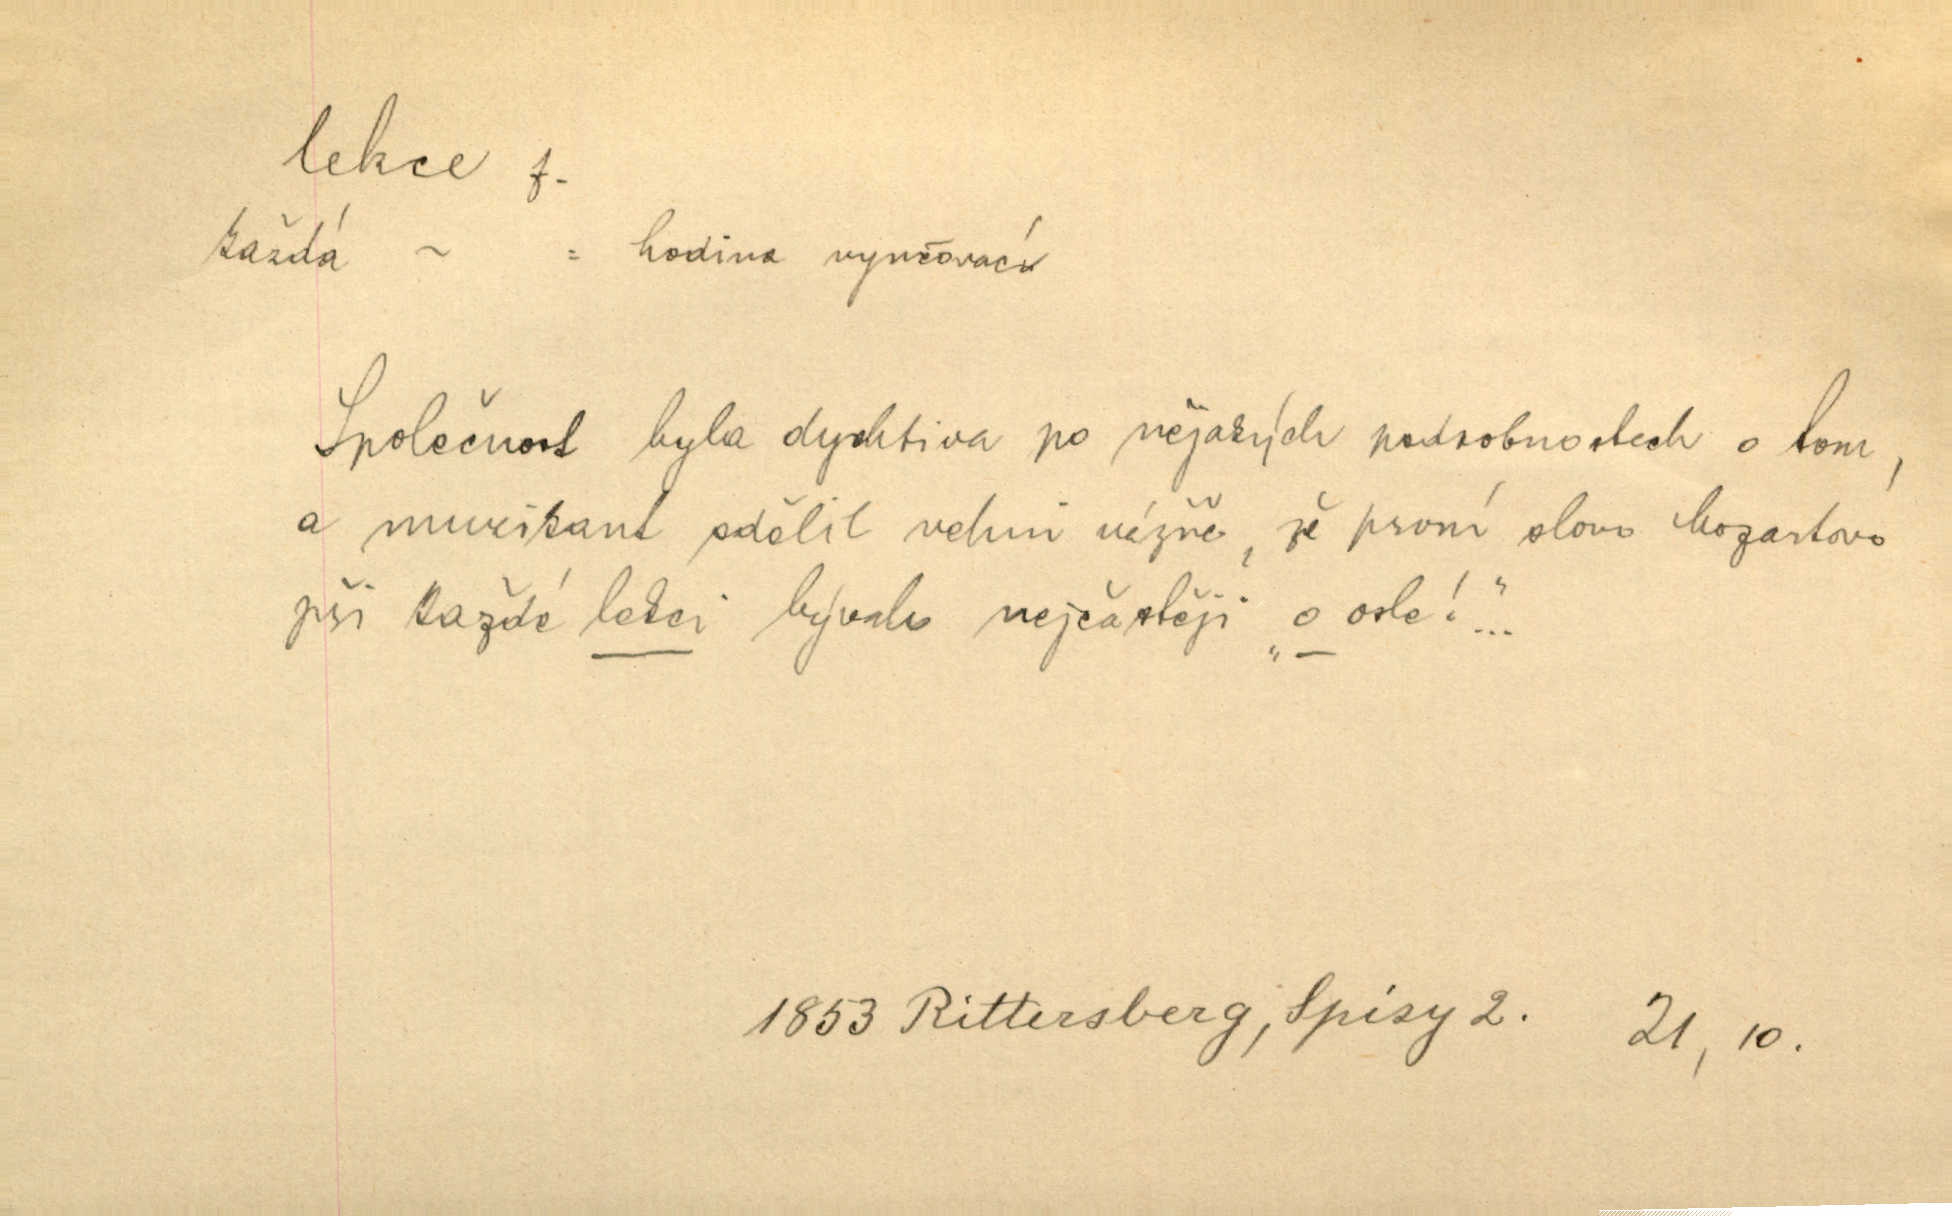 lekce f.
každá ~ = hodina vyučovací
Společnost byla dychtiva po nějakých podrobnostech o tom,
a muzikant sdělil velmi vážně, že první slovo Mozartovo
při každé lekci bývalo nejčastěji „o osle!“...
1853 Rittersberg, Spisy 2. 21, 10.